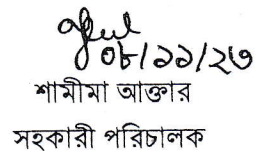 ০৮/১১/২৩
শামীমা আক্তার
সহকারী পরিচালক